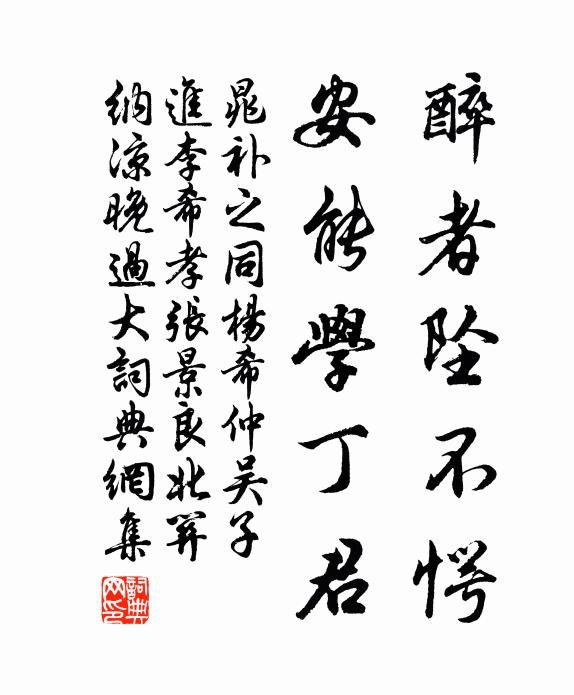 醉者坠不愕
安能學丁君
晁补之同楊希仲吴子
進李希孝張景良北羿
納凉晚過大詞典網集
詞典网印